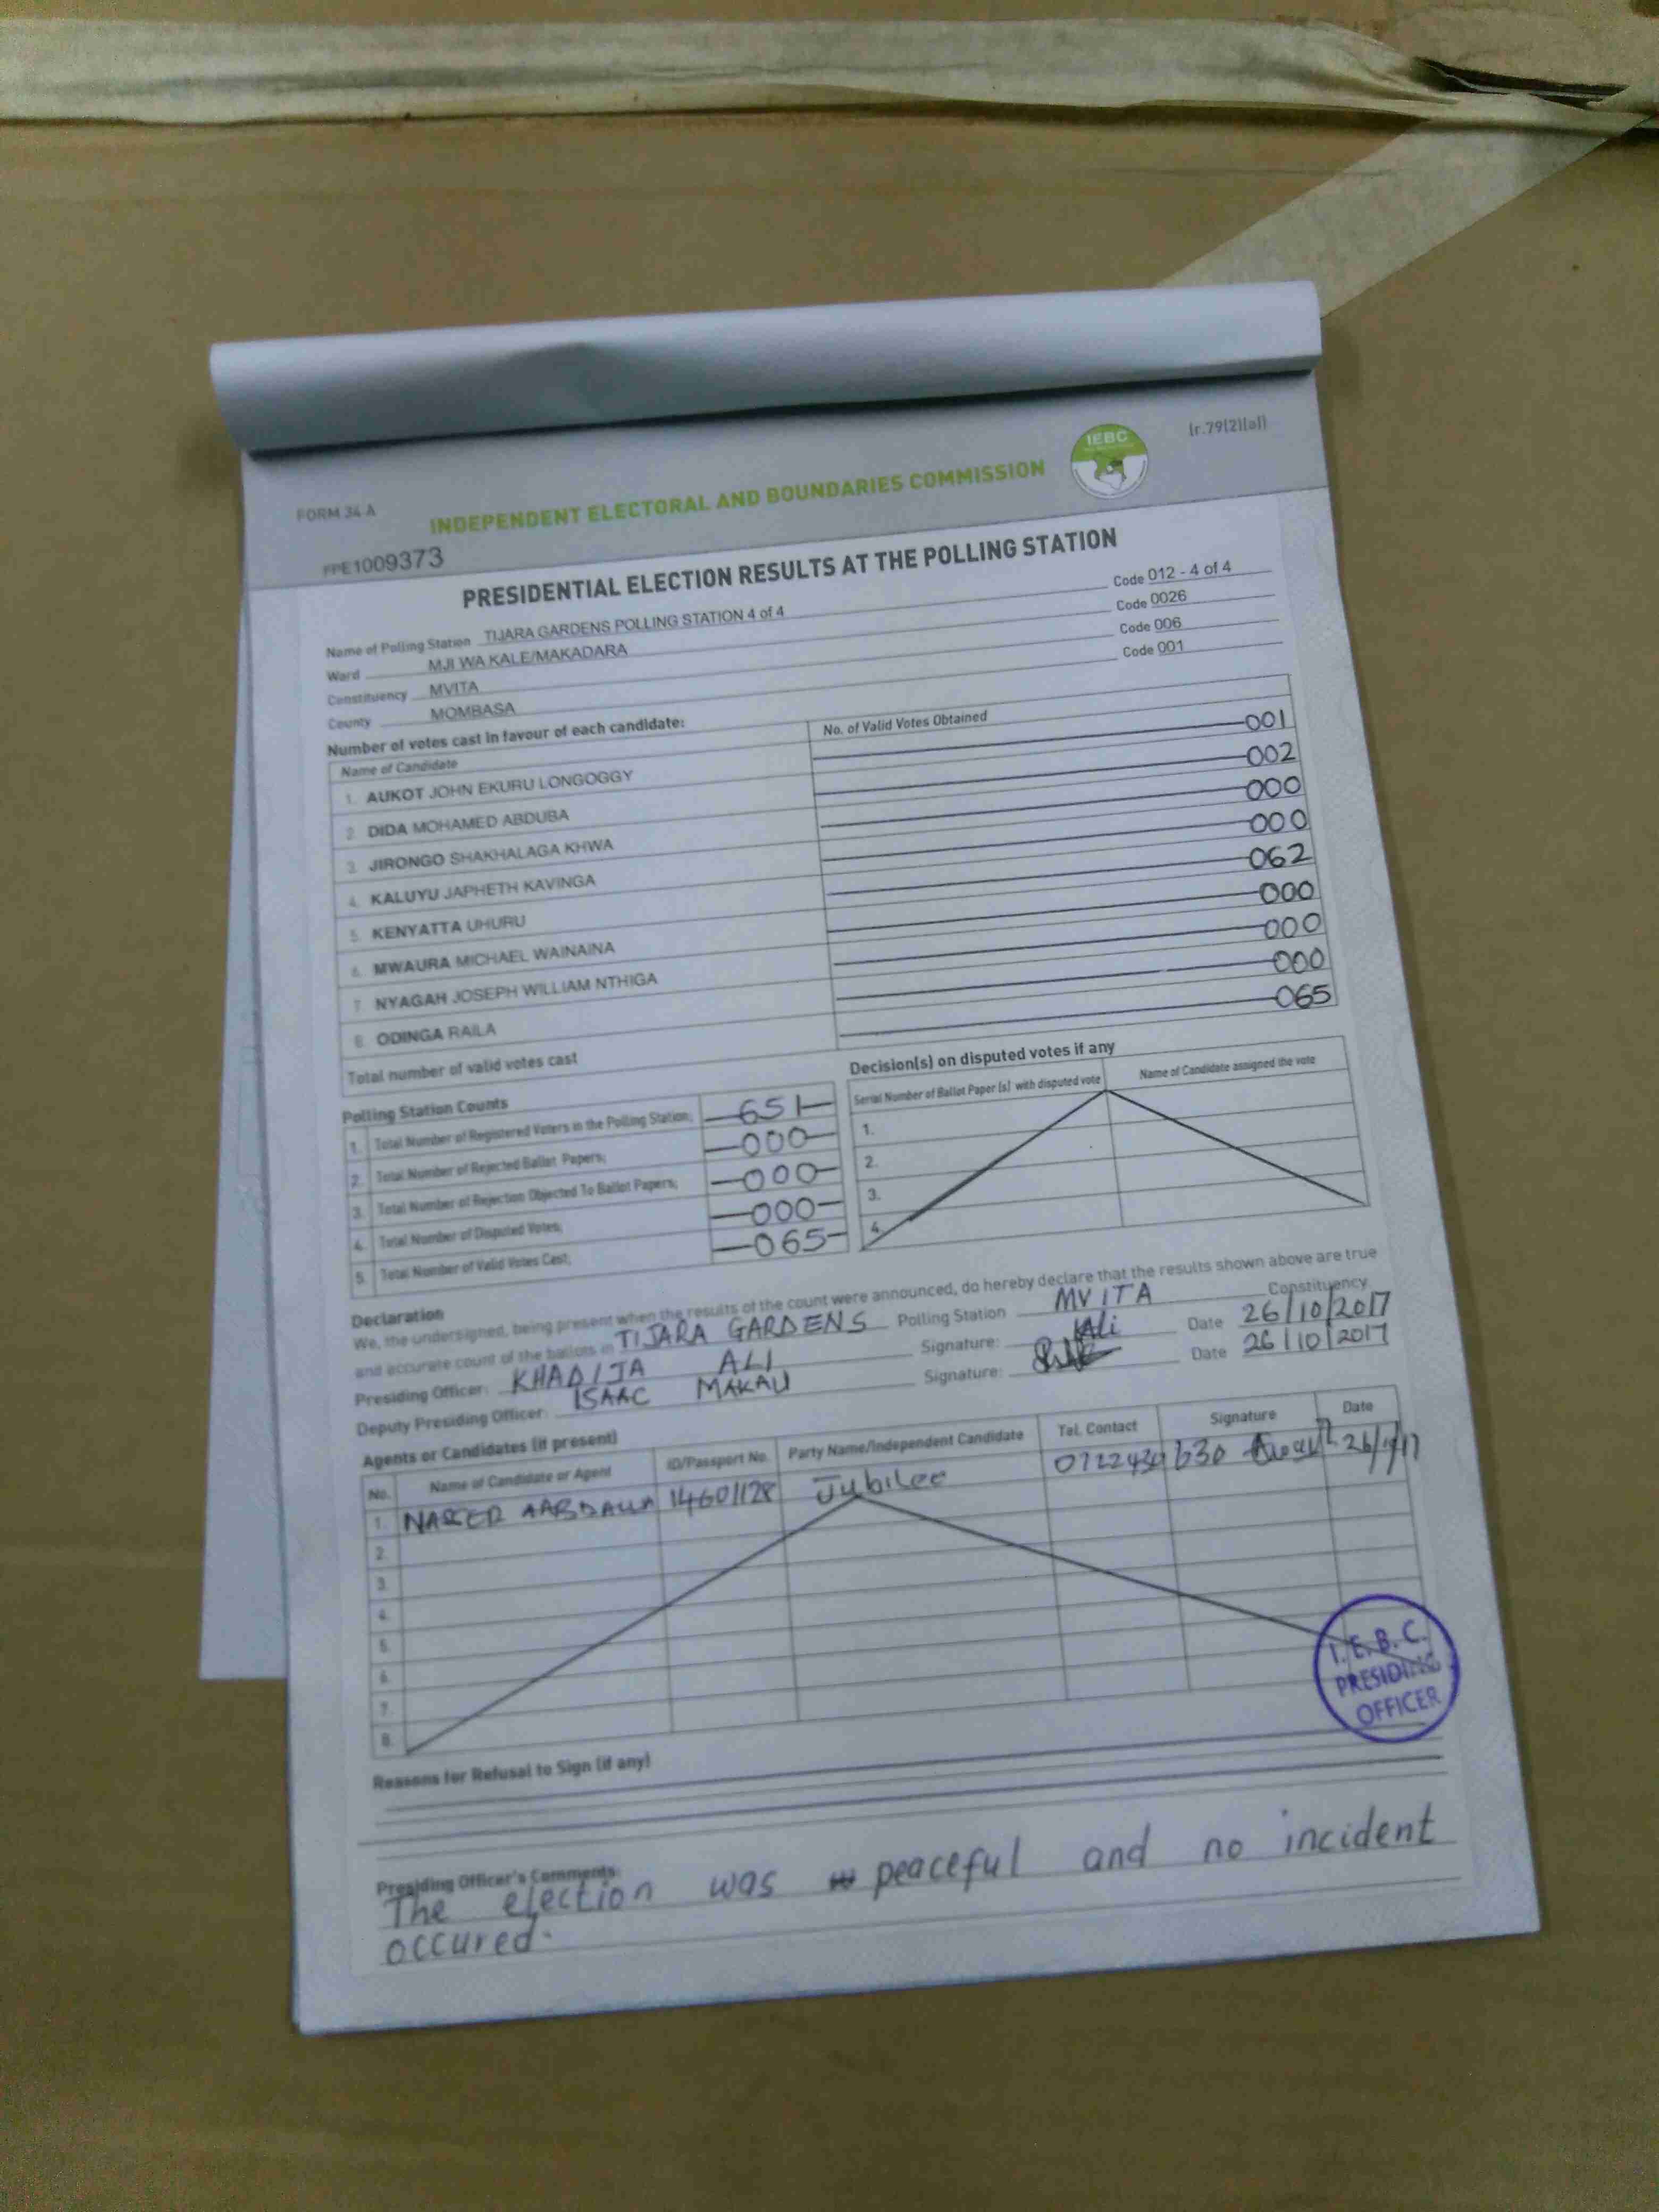 IEBC
(r.79(2)(a))
FORM 34 A
INDEPENDENT ELECTORAL AND BOUNDARIES COMMISSION
PPE1009373
PRESIDENTIAL ELECTION RESULTS AT THE POLLING STATION
Name of Polling Station TIJARA GARDENS POLLING STATION 4 of 4 Code 012 - 4 of 4
Ward MJI WA KALE/MAKADARA Code 0026
Constituency MVITA Code 006
County MOMBASA Code 001
Number of votes cast in favour of each candidate:
Name of Candidate No. of Valid Votes Obtained
1. AUKOT JOHN EKURU LONGOGGY 001
2. DIDA MOHAMED ABDUBA 002
3. JIRONGO SHAKHALAGA KHWA 000
4. KALUYU JAPHETH KAVINGA 000
5. KENYATTA UHURU 062
6. MWAURA MICHAEL WAINAINA 000
7. NYAGAH JOSEPH WILLIAM NTHIGA 000
8. ODINGA RAILA 000
Total number of valid votes cast 065
Polling Station Counts
1. Total Number of Registered Voters in the Polling Station; 651
2. Total Number of Rejected Ballot Papers; 000
3. Total Number of Rejection Objected To Ballot Papers; 000
4. Total Number of Disputed Votes; 000
5. Total Number of Valid Votes Cast; 065
Decision(s) on disputed votes if any
Serial Number of Ballot Paper (s) with disputed vote Name of Candidate assigned the vote
1.
2.
3.
4.
Declaration
We, the undersigned, being present when the results of the count were announced, do hereby declare that the results shown above are true
and accurate count of the ballots in TIJARA GARDENS Polling Station MVITA Constituency
Presiding Officer: KHADIJA ALI Signature: Ali Date 26/10/2017
Deputy Presiding Officer: ISAAC MAKAU Signature: Date 26/10/2017
Agents or Candidates (if present)
No. Name of Candidate or Agent ID/Passport No. Party Name/Independent Candidate Tel. Contact Signature Date
1. 14601128 Jubilee
2.
3.
4.
5.
6.
7.
8.
I.E.B.C.
PRESIDING
OFFICER
Reasons for Refusal to Sign (if any)
Presiding Officer's Comments:
The election was peaceful and no incident
occured.